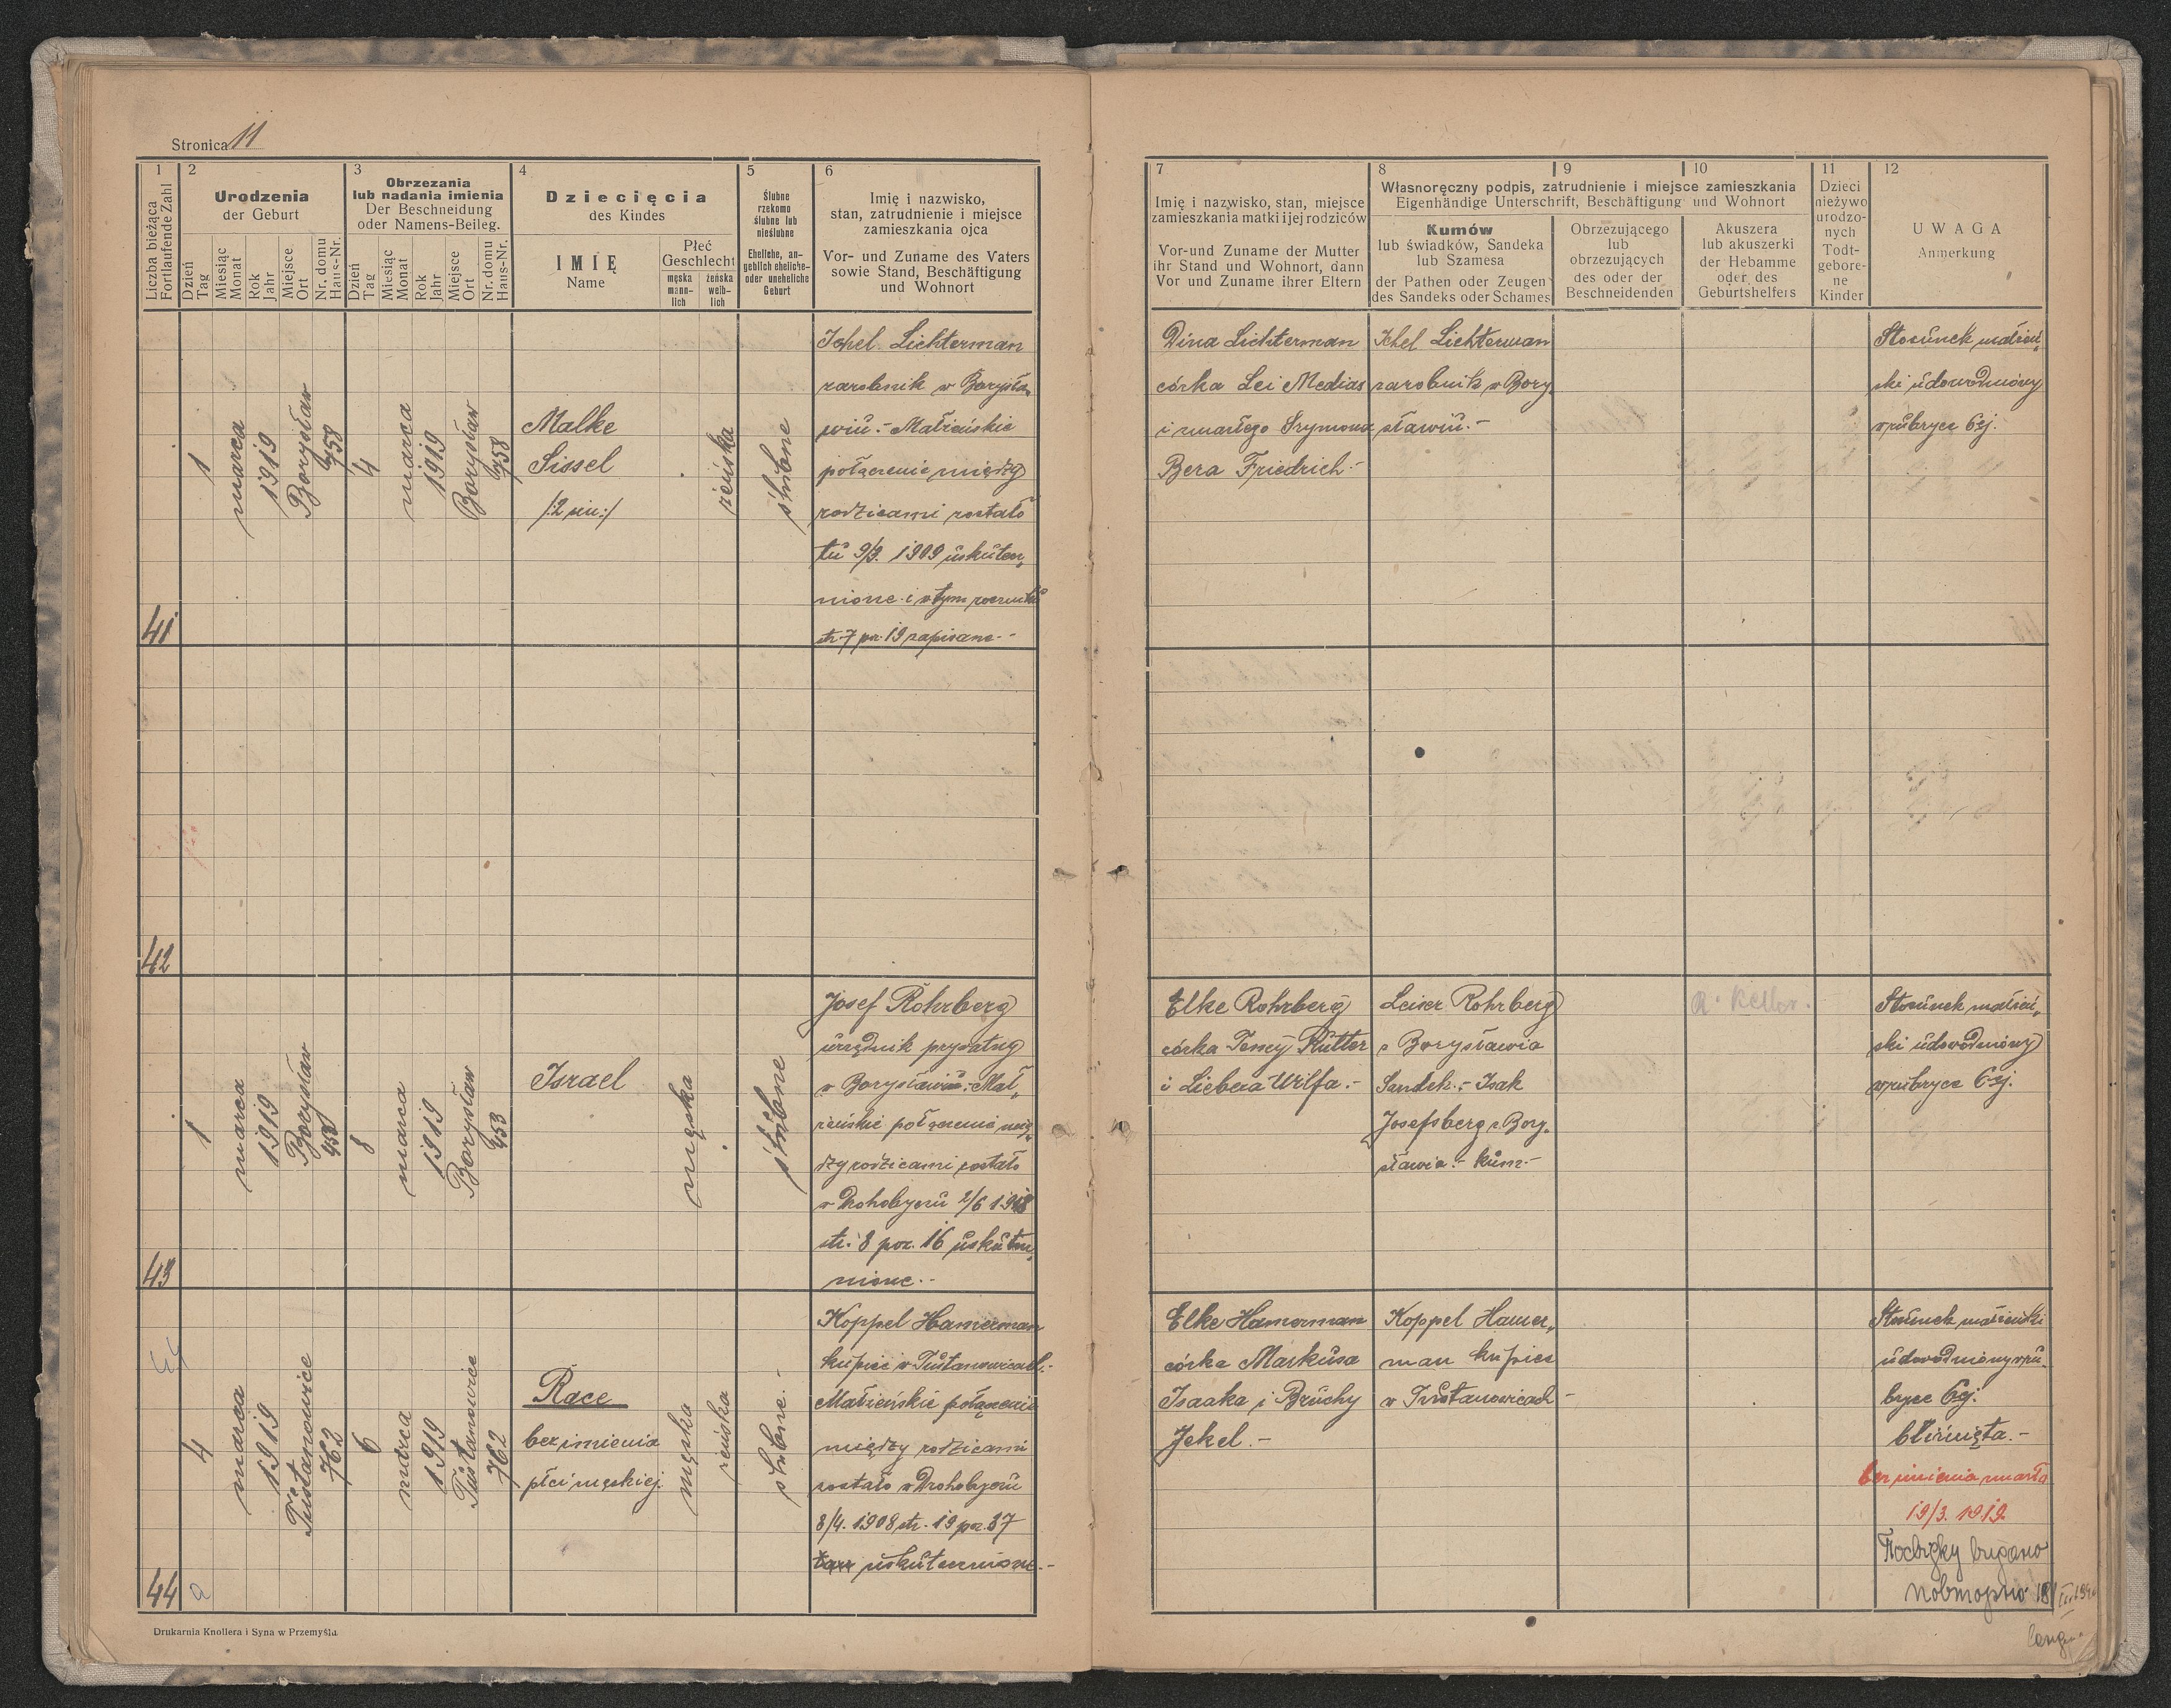 Stronica 11
1
Liczba bieżąca
Fortlaufende Zahl
2
Urodzenia
der Geburt
Dzień
Tag
Miesiąc
Monat
Rok
Jahr
Miejsce
Ort
Nr. domu
Haus-Nr.
3
Obrzezania
lub nadania imienia
Der Beschneidung
oder Namens-Beileg.
Dzień
Tag
Miesiąc
Monat
Rok
Jahr
Miejsce
Ort
Nr. domu
Haus-Nr.
4
Dziecięcia
des Kindes
IMIĘ
Name
Płeć
Geschlecht
męska
männ-
lich
żeńska
weib-
lich
5
Ślubne
rzekomo
ślubne lub
nieślubne
Eheliche, an-
geblich eheliche-
oder uneheliche
Geburt
6
Imię i nazwisko,
stan, zatrudnienie i miejsce
zamieszkania ojca
Vor- und Zuname des Vaters
sowie Stand, Beschäftigung
und Wohnort
7
Imię i nazwisko, stan, miejsce
zamieszkania matki i jej rodziców
Vor-und Zuname der Mutter
ihr Stand und Wohnort, dann
Vor und Zuname ihrer Eltern
8
9
10
Własnoręczny podpis, zatrudnienie i miejsce zamieszkania
Eigenhändige Unterschrift, Beschäftigung und Wohnort
Kumów
lub świadków, Sandeka
lub Szamesa
der Pathen oder Zeugen
des Sandeks oder Schames
Obrzezującego
lub
obrzezujących
des oder der
Beschneidenden
Akuszera
lub akuszerki
der Hebamme
oder des
Geburtshelfers
11
Dzieci
nieżywo
urodzo-
nych
Todt-
gebore-
ne
Kinder
12
UWAGA
Anmerkung
41
1
marca
1919
Borysław
4
marca
1919
Borysław
Malke
Sissel
/:2 im:/
żeńska
ślubne
Ichel Lichterman
zarobnik w Borysła„
wiu.- Małżeńskie
połączenie między
rodzicami zostało
tu 9/9. 1909 uskutecz„
nione i w tym roczniku
str. 7 poz. 19 zapisane.-
Dina Lichterman
córka Lei Medias
i zmarłego Szymona
Bera Friedrich.-
Ichel Lichterman
zarobnik w Bory„
sławiu.-
Stosunek małżeń„
ski udowodniony
w rubryce 6ej.
42
43
1
marca
1919
Borysław
453
8
marca
1919
Borysław
453
Israel
męska
ślubne
Josef Rohrberg
urzędnik prywatny
w Borysławiu.- Mał„
żeńskie połączenie mię„
dzy rodzicami zostało
w Drohobyczu 2/6 1918
str. 8 poz. 16 uskutecz„
nione.-
Elke Rohrberg
córka Tomy Rutter
i Liebera Wilfa.-
Leiser Rohrberg
z Borysławia
Sandek.- Isak
Josefsberg z Bory„
sławia.- kum.-
R. Keller.
Stosunek małżeń„
ski udowodniony
w rubryce 6ej.
44
a
4
marca
1919
Tustanowice
762
6
marca
1919
Tustanowice
762
Race
bez imienia
płci męskiej.
męska
żeńska
ślubne.-
Koppel Hamerman
kupiec w Tustanowicach.-
Małżeńskie połączenie
między rodzicami
zostało w Drohobyczu
8/4. 1908 str. 19 poz. 37
uskutecznione.-
Elke Hamerman
córka Markusa
Isaaka i Bruchy
Jekel.-
Koppel Hamer„
man kupiec
w Tustanowicach-
Stosunek małżeński
udowodniony w ru„
bryce 6ej.
bliźnięta.-
bez imienia zmarła
19/3. 1919.
видано
повторно
Drukarnia Knollera i Syna w Przemyślu